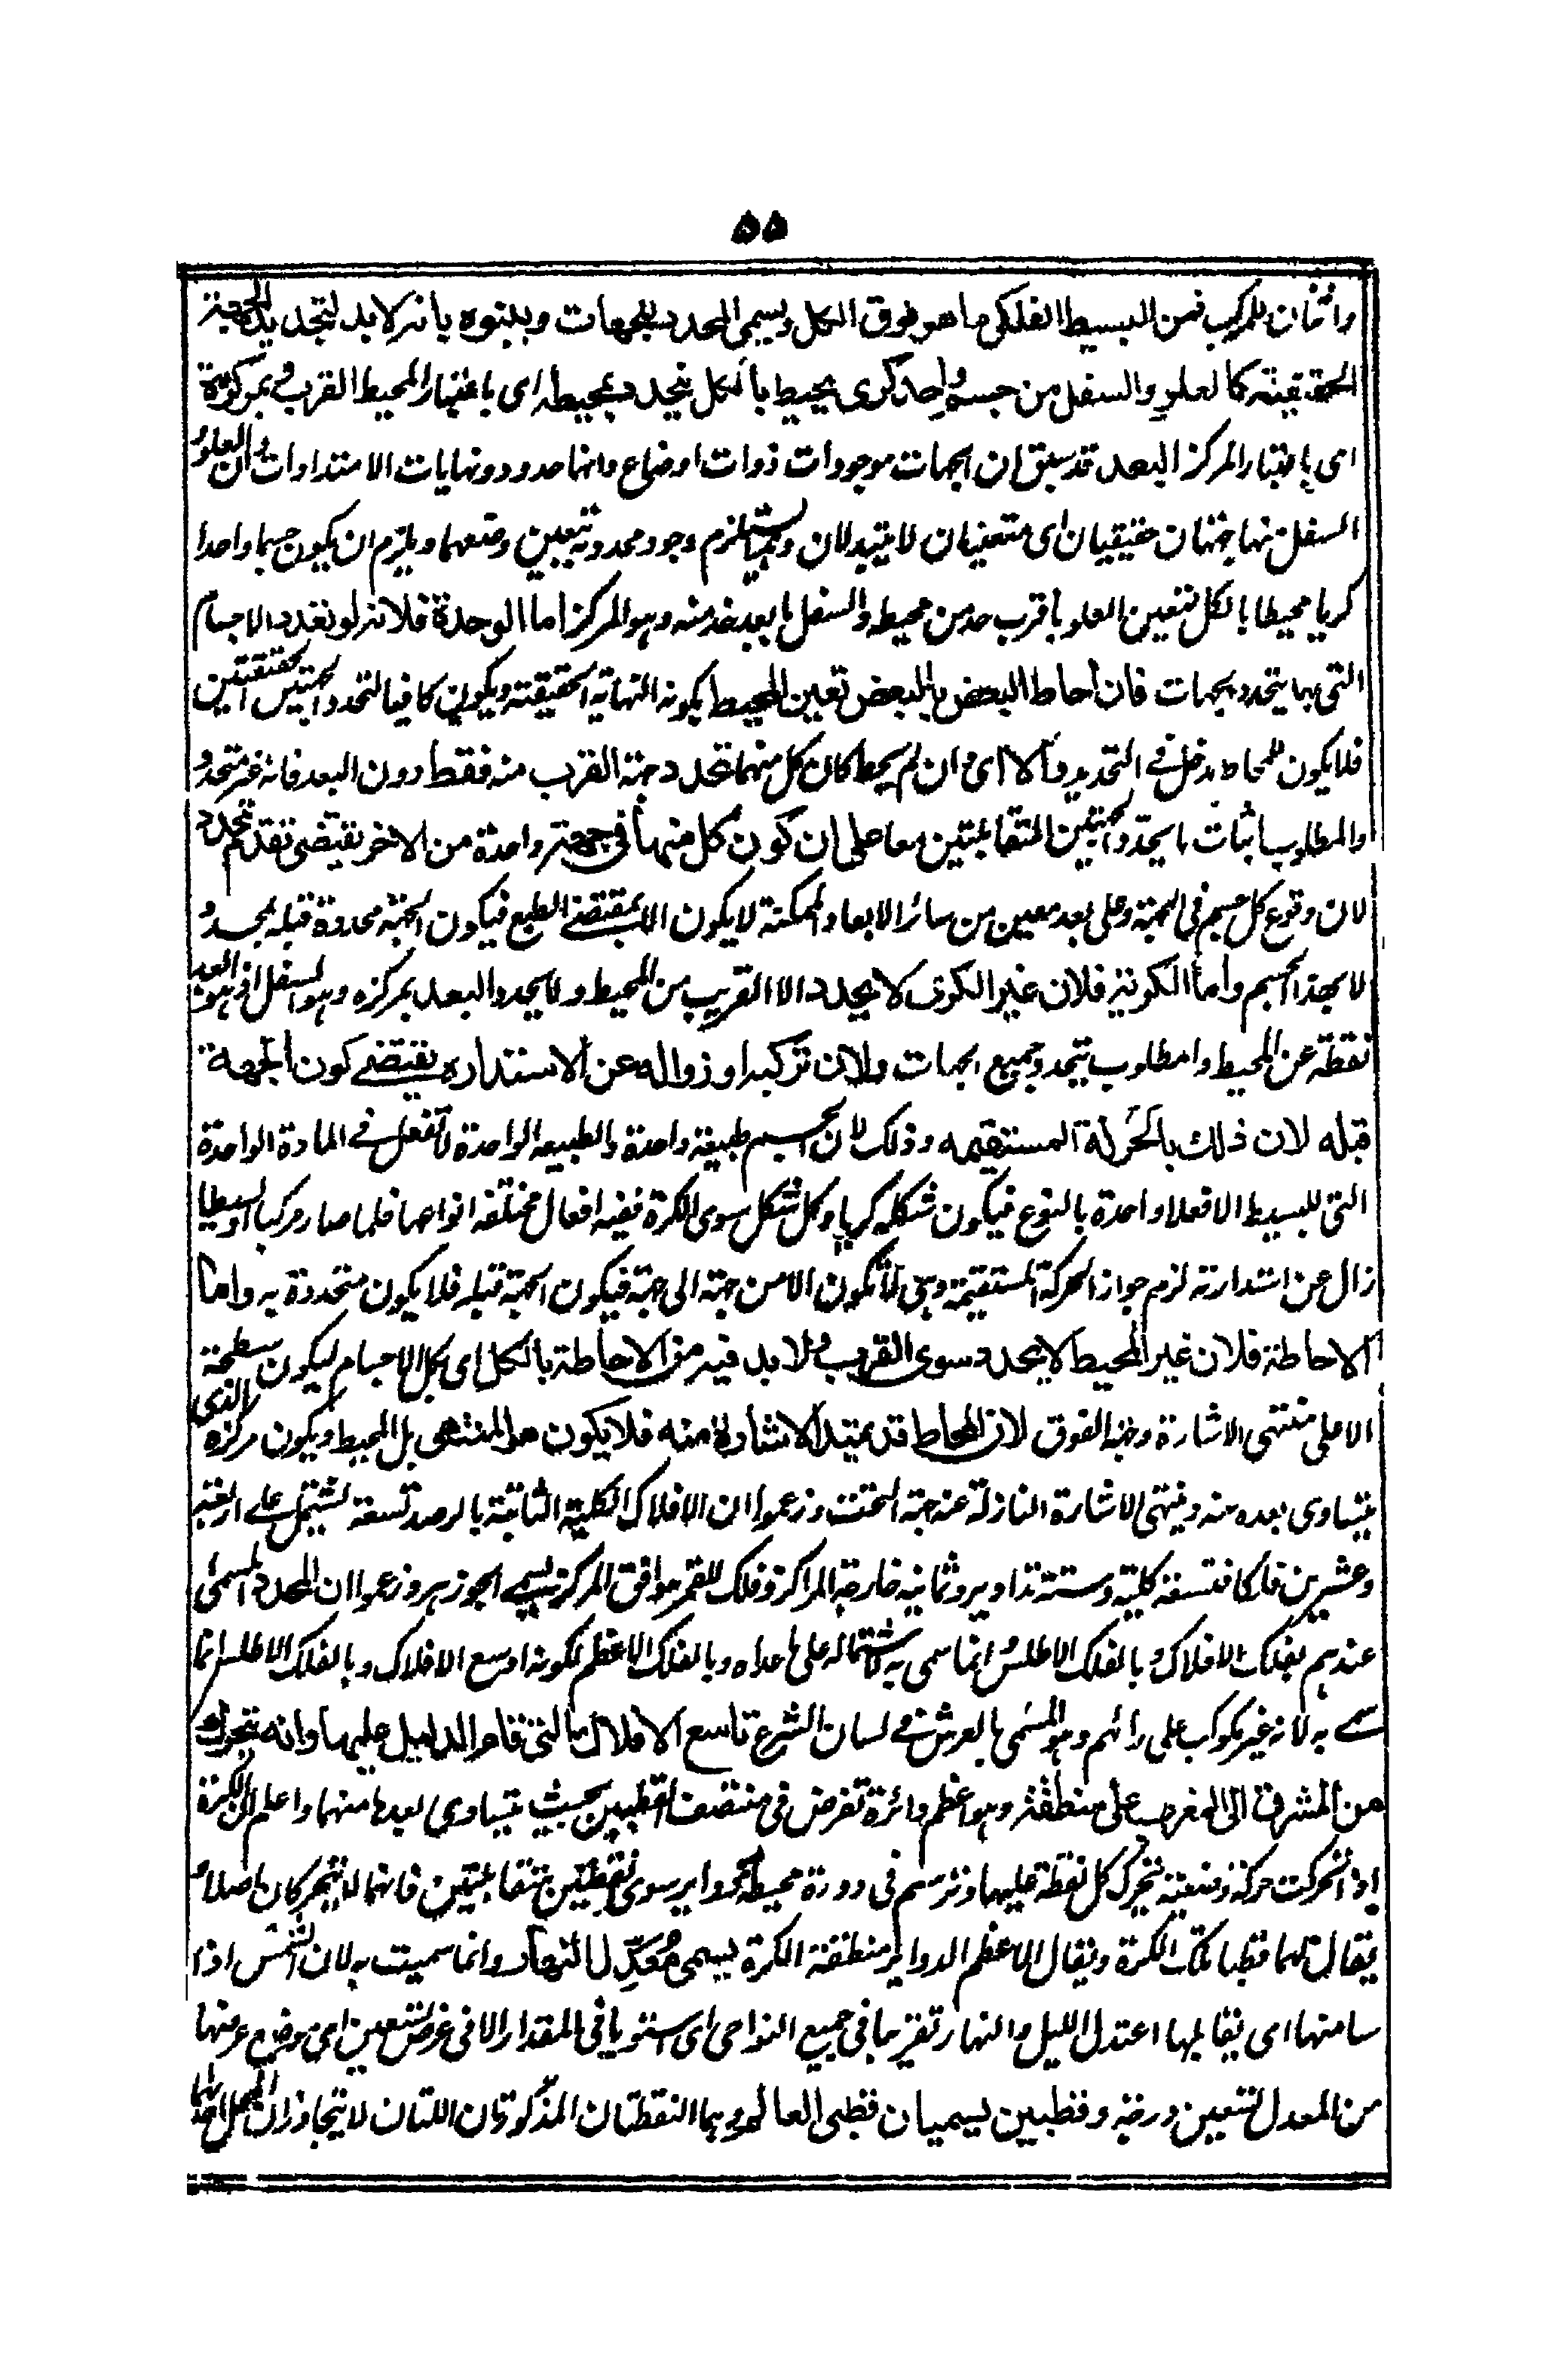 ٥٥
واثنان للمركب فمن البسيط الفلكى ما هو فوق الكل ويسمى المحدد للجهات وبينوه بانه لابد لتحديد الجهة
الحقيقية كالعلو والسفل من جسم واحد كرى يحيط بالكل يتحدد بمحيطه اى باعتبار المحيط القرب وبمركزه
اى باعتبار المركز البعد قد سبق ان الجهات موجودات ذوات اوضاع وانها حدود ونهايات الامتدادات وان العلو و
السفل منها جهتان حقيقيان اى متعينيان لا يتبدلان وهذا يستلزم وجود محدد به تتعين وضعهما ويلزم ان يكون جسما واحدا
كريا محيطا بالكل لتعين العلو باقرب حد من محيطه والسفل بابعد حد منه وهو المركز اما الوحدة فلانه لو تعدد الاجسام
التى بها يتحدد الجهات فان احاط البعض بالبعض تعين المحيط بكونه النهاية الحقيقية ويكون كافيا لتحدد الجهتين الحقيقيتين
فلا يكون للمحاط دخل فى التحديد والا اى وان لم يحط كان كل منهما تحدد جهة القرب منه فقط دون البعد فانه غير متحدد
والمطلوب اثبات ما يحدد الجهتين المتقابلتين معا على ان كون كل منهما فى جهة واحدة من الاخر يقتضى تقدم تحدد
لان وقوع كل جسم فى الجهة وعلى بعد معين من سائر الابعاد الممكنة لا يكون الا بمقتضى الطبع فيكون الجهة محدودة قبله بمحدد
لا بهذا الجسم واما الكرية فلان غير الكرى لا يحدد الا القريب من المحيط ولا يحدد البعد بمركزه وهو السفل اذ هو ابعد
نقطة عن المحيط والمطلوب تحدد جميع الجهات ولان تركبه او زواله عن الاستداره يقتضى كون الجهة
قبله لان ذلك بالحركة المستقيمه وذلك لان الجسم طبيعة واحدة والطبيعة الواحدة لا تفعل فى المادة الواحدة
التى للبسيط الا فعلا واحدة بالنوع فيكون شكله كريا وكل شكل سوى الكرة ففيه افعال مختلفه انواعها فلما صار مركبا او بسيطا
زال عن استدارته لزم جواز الحركة المستقيمة وهى لا تكون الا من جهة الى جهة فيكون الجهة قبله فلا يكون متحددة به واما
الاحاطة فلان غير المحيط لا يحدد سوى القرب ولا بد فيه من الاحاطة بالكل اى بكل الاجسام ليكون سطحه
الاعلى منتهى الاشارة وجهة الفوق لان المحاط قد يمتد الاشارة منه فلا يكون هو المنتهى بل المحيط ويكون مركزه الذى
يتساوى بعده منه ومنتهى الاشارة النازلة عنه جهة التحت وزعموا ان الافلاك الكلية الثابتة بالرصد تسعة لتشتمل على اربعة
وعشرين فلكا فتسعة كلية وستة تداوير وثمانية خارجة المراكز وفلك للقمر موافق المركز يسمى الجوزهر وزعموا ان المحدد المسمى
عندهم بفلك الافلاك و بالفلك الاطلس انما سمى به لاشتماله على ما عداه وبالفلك الاعظم لكونه اوسع الافلاك وبالفلك الاطلس انما
سمى به لانه غير مكوكب على رائهم وهو المسمى بالعرش فى لسان الشرع تاسع الافلاك التى قام الدليل عليها وانه يتحرك
من المشرق الى المغرب على منطقة وهو اعظم دائرة تفرض فى منتصف القطبين بحيث يتساوى بعدها منهما واعلم ان الكرة
اذا تحركت حركة وضعية يتحرك كل نقطة عليها وترسم فى دورة محيطة دواير سوى نقطتين متقابلتين فانهما لا يتحركان اصلا و
يقال لهما قطبا تلك الكرة ويقال لما اعظم الدواير منطقة الكرة يسمى مُعَدِّل النهار وانما سميت به لان الشمس اذا
سامتها اى يقابلها اعتدل الليل والنهار تقريبا فى جميع النواحى اى استويا فى المقدار الا فى عرض تسعين اى موضع عرضها
من المعدل تسعين درجة وقطبين يسميان قطبى العالم وهما النقطتان المذكورتان اللتان لا يتجاوزان المحل احدهما